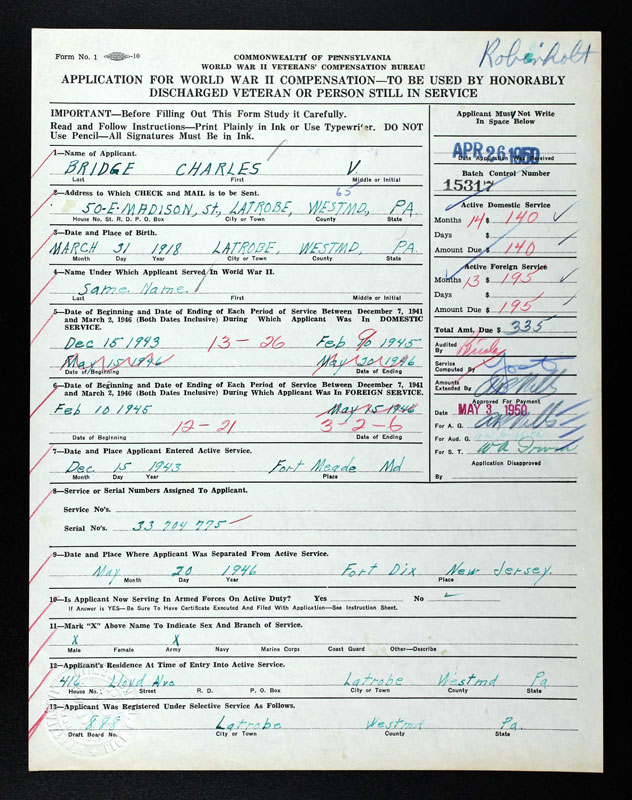 Form No. 1 -10
Roberholt
COMMONWEALTH OF PENNSYLVANIA
WORLD WAR II VETERANS' COMPENSATION BUREAU
APPLICATION FOR WORLD WAR II COMPENSATION—TO BE USED BY HONORABLY
DISCHARGED VETERAN OR PERSON STILL IN SERVICE
IMPORTANT—Before Filling Out This Form Study it Carefully.
Read and Follow Instructions—Print Plainly in Ink or Use Typewriter. DO NOT
Use Pencil—All Signatures Must Be in Ink.
Applicant Must Not Write
In Space Below
APR 26 1950
Date Application Was Received
Batch Control Number
15317
1—Name of Applicant.
BRIDGE CHARLES V
Last First Middle or Initial
2—Address to Which CHECK and MAIL is to be Sent.
65
50-E-MADISON, St., LATROBE, WESTMD, PA.
House No. St. R. D. P. O. Box City or Town County State
3—Date and Place of Birth.
MARCH 31 1918 LATROBE, WESTMD, PA.
Month Day Year City or Town County State
4—Name Under Which Applicant Served In World War II.
Same Name
Last First Middle or Initial
5—Date of Beginning and Date of Ending of Each Period of Service Between December 7, 1941
and March 2, 1946 (Both Dates Inclusive) During Which Applicant Was In DOMESTIC
SERVICE.
Dec 15 1943 13-26 Feb 9 10 1945
May 15 1946 May 20 1946
Date of Beginning Date of Ending
6—Date of Beginning and Date of Ending of Each Period of Service Between December 7, 1941
and March 2, 1946 (Both Dates Inclusive) During Which Applicant Was In FOREIGN SERVICE.
Feb 10 1945 May 15 1946
12-21 3-2-6
Date of Beginning Date of Ending
7—Date and Place Applicant Entered Active Service.
Dec 15 1943 Fort Meade Md
Month Day Year Place
Active Domestic Service
Months 14 $ 140
Days $
Amount Due $ 140
Active Foreign Service
Months 13 $ 195
Days $
Amount Due $ 195
Total Amt. Due $ 335
Audited
By
Service
Computed By
Amounts
Extended By
Approved For Payment
Date MAY 3 1950
For A. G.
For Aud. G.
For S. T.
Application Disapproved
By
8—Service or Serial Numbers Assigned To Applicant.
Service No's.
Serial No's. 33 704 775
9—Date and Place Where Applicant Was Separated From Active Service.
May 20 1946 Fort Dix New Jersey.
Month Day Year Place
10—Is Applicant Now Serving In Armed Forces On Active Duty? Yes No ✓
If Answer is YES—Be Sure To Have Certificate Executed And Filed With Application—See Instruction Sheet.
11—Mark "X" Above Name To Indicate Sex and Branch of Service.
X X
Male Female Army Navy Marine Corps Coast Guard Other—Describe
12—Applicant's Residence At Time of Entry Into Active Service.
416 Lloyd Ave Latrobe Westmd Pa
House No. Street R. D. P. O. Box City or Town County State
13—Applicant Was Registered Under Selective Service As Follows.
888 Latrobe Westmd Pa.
Draft Board No. City or Town County State